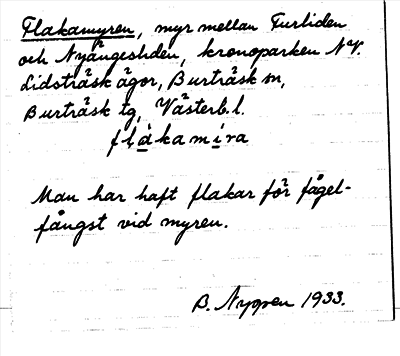 Flakamyren, myr mellan Furliden
och Nyängesliden, kronoparken NV.
Lidsträsk ägor, Burträsk sn,
Burträsk tg, Västerb. l.
flàkamìra
Man har haft flakar för fågel-
fångst vid myren.
B. Nygren 1933.